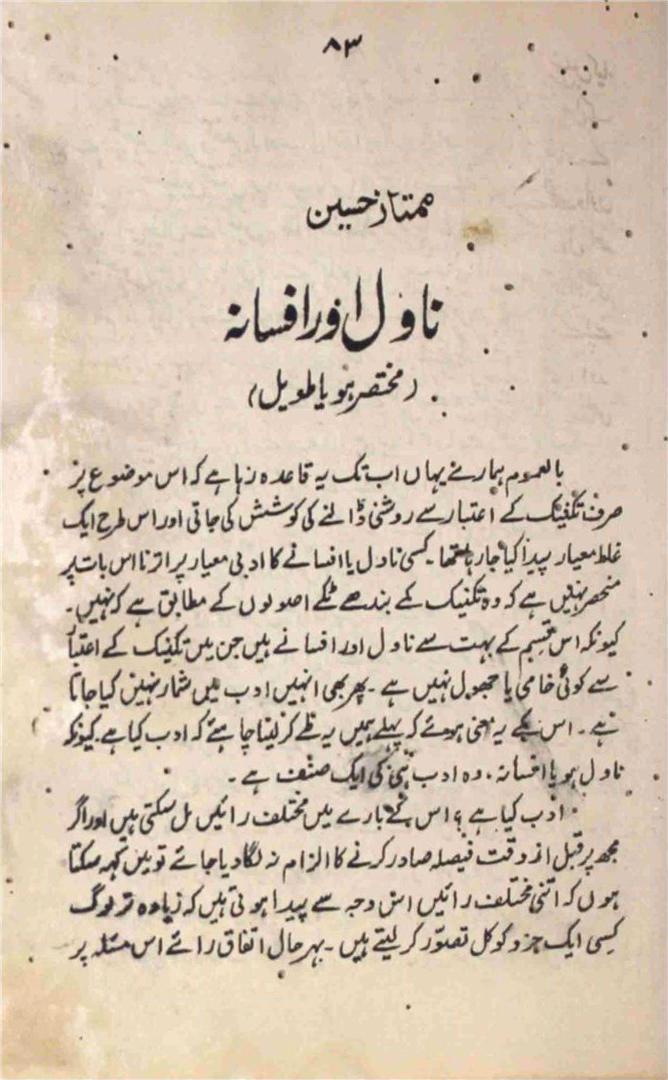 ۸۳
ممتاز حسین
ناول اور افسانہ
(مختصر ہو یا طویل)
بالعموم ہمارے یہاں اب تک یہ قاعدہ رہا ہے کہ اس موضوع پر
صرف تکنیک کے اعتبار سے روشنی ڈالنے کی کوشش کی جاتی اور اس طرح ایک
غلط معیار پیدا کیا جا رہا تھا۔ کسی ناول یا افسانے کا ادبی معیار پر اترنا اس بات پر
منحصر نہیں ہے کہ وہ تکنیک کے بندھے ٹکے اصولوں کے مطابق ہے کہ نہیں۔
کیونکہ اس قسم کے بہت سے ناول اور افسانے ہیں جن میں تکنیک کے اعتبا
سے کوئی خامی یا جھول نہیں ہے۔ پھر بھی انہیں ادب میں شمار نہیں کیا جاتا
ہے۔ اس کے یہ معنی ہوئے کہ پہلے ہمیں یہ طے کر لینا چاہئے کہ ادب کیا ہے۔ کیونکہ
ناول ہو یا افسانہ، وہ ادب ہی کی ایک صنف ہے۔
ادب کیا ہے؟ اس کے بارے میں مختلف رائیں مل سکتی ہیں اور اگر
مجھ پر قبل از وقت فیصلہ صادر کرنے کا الزام نہ لگا دیا جائے تو میں کہہ سکتا
ہوں کہ اتنی مختلف رائیں اس وجہ سے پیدا ہوتی ہیں کہ زیادہ تر لوگ
کسی ایک جزو کو کل تصوّر کر لیتے ہیں۔ بہر حال اتفاق رائے اس مسئلہ پر